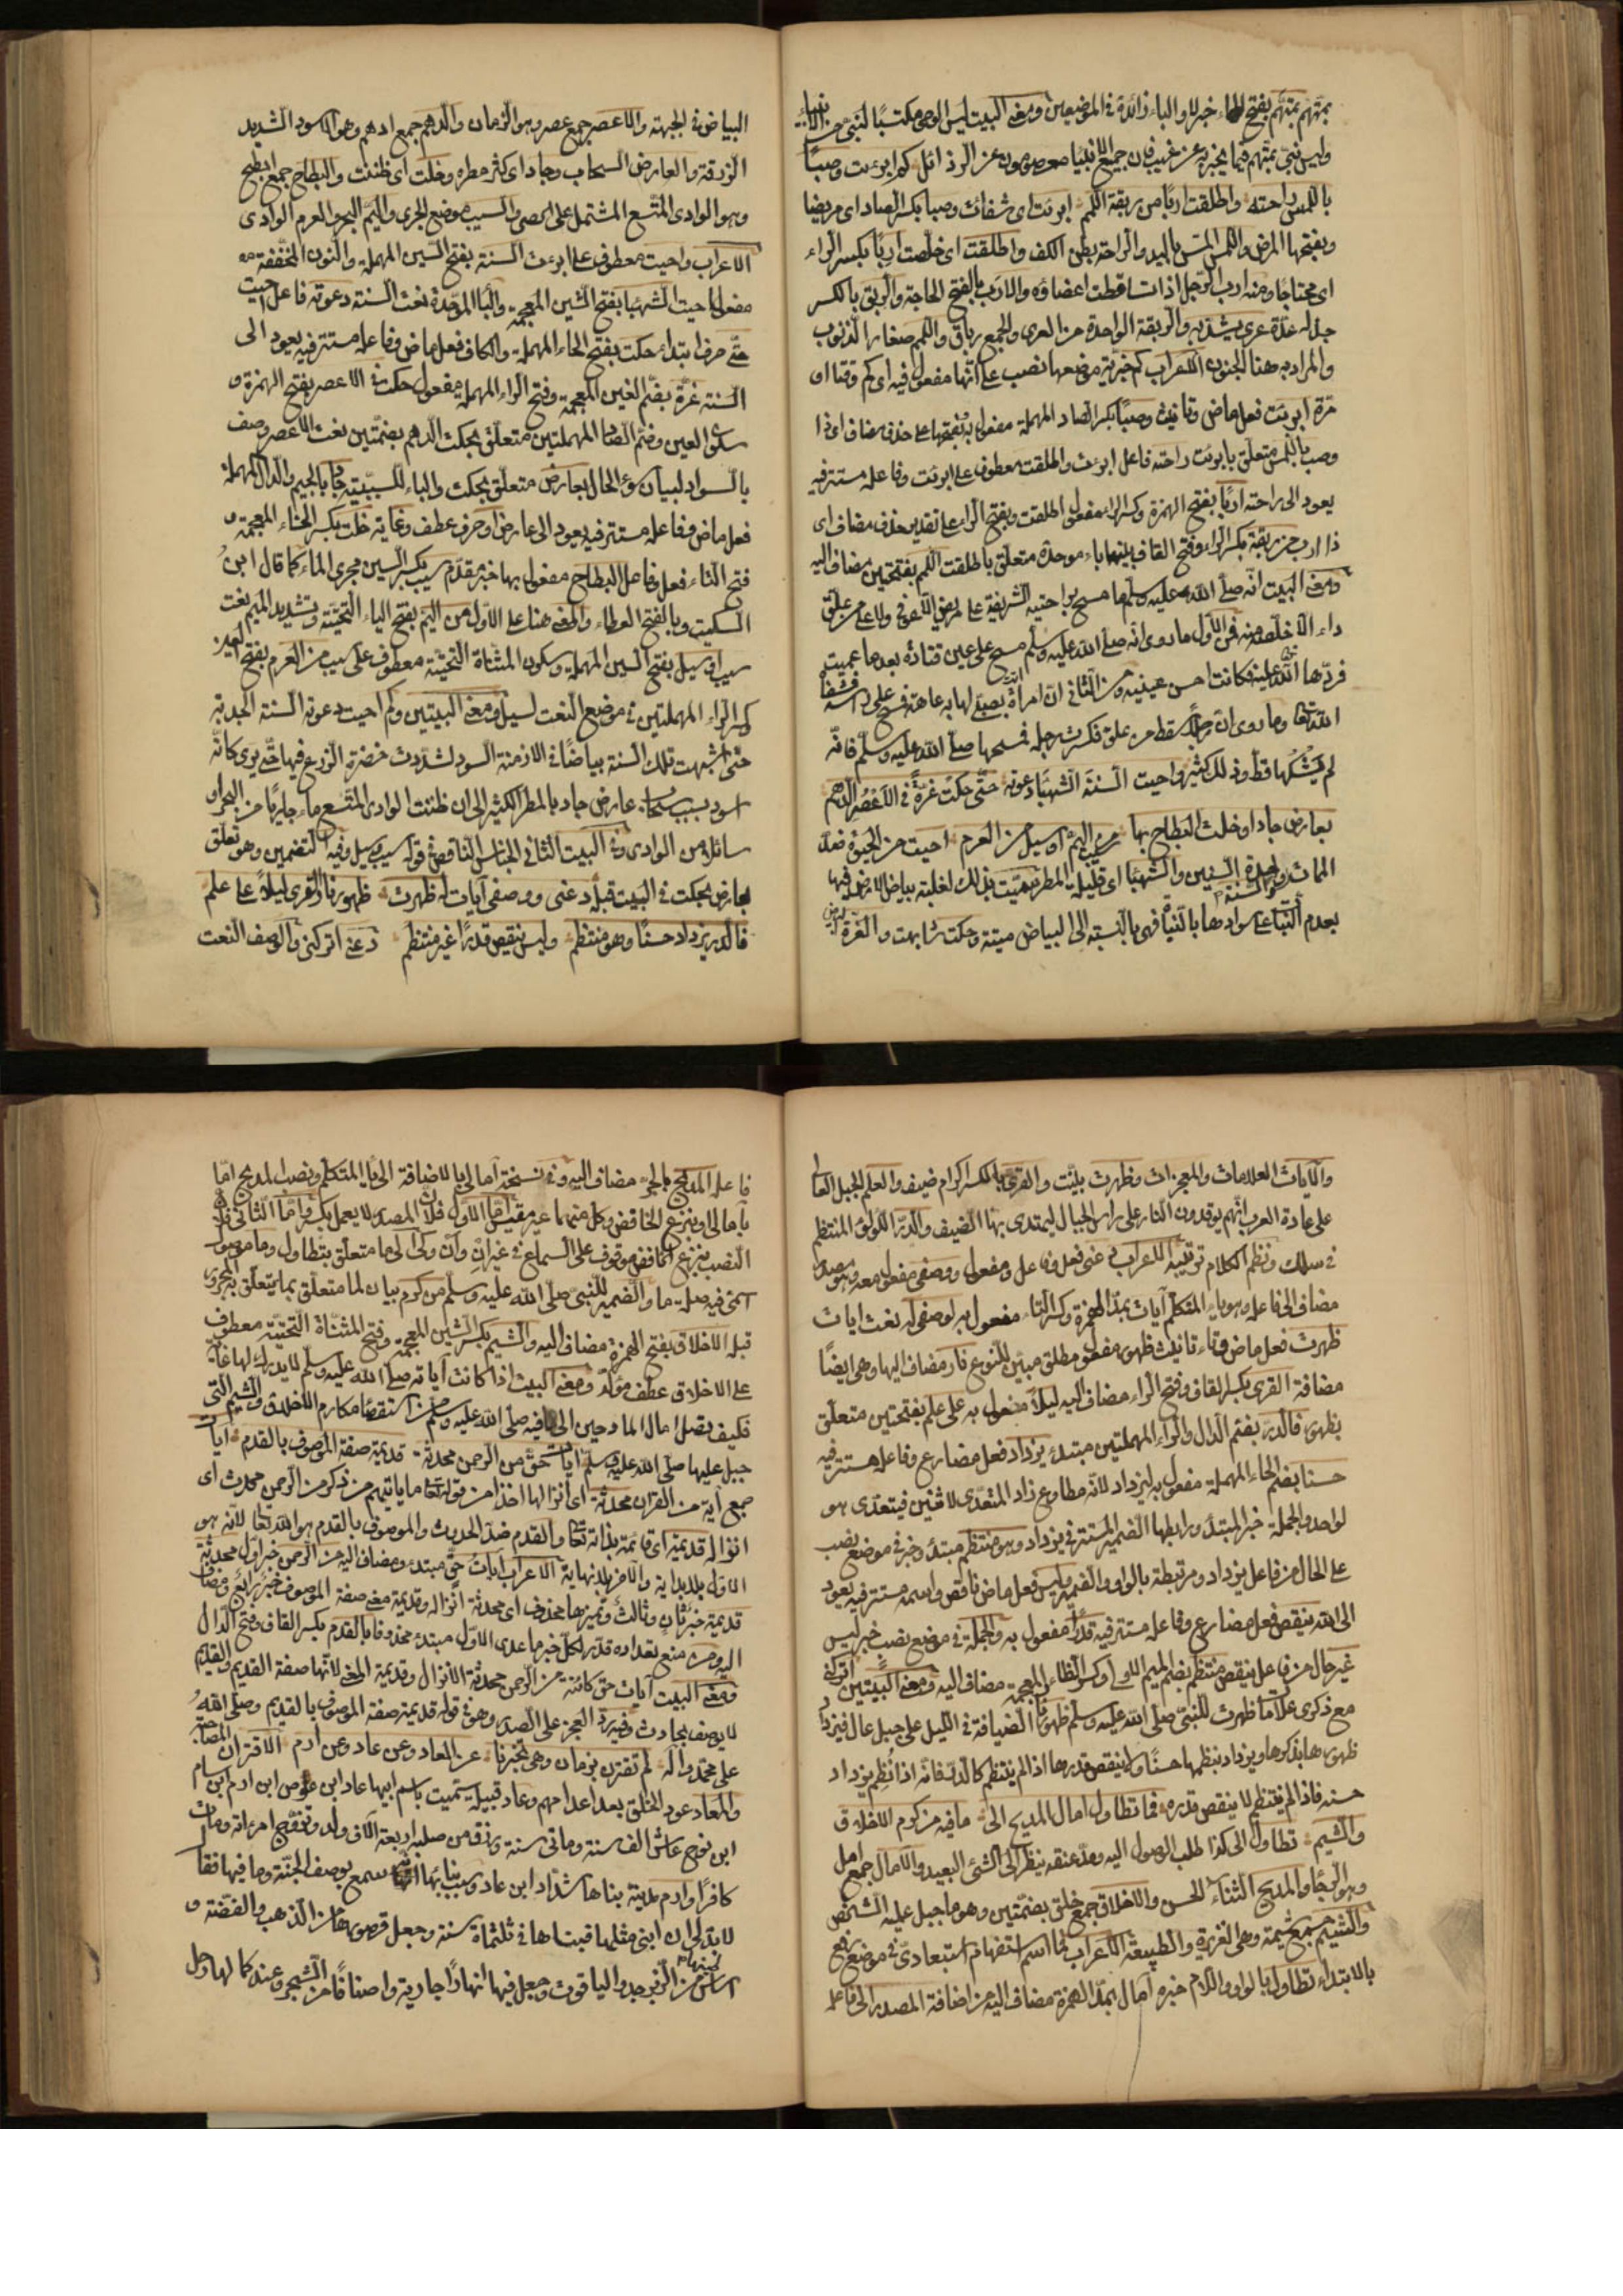 بمتّهم بمتّهم بفتح الهاء خبر لا والباء زائدة في الموضعين ومعنى البيت ليس الوحى مكتسبًا لنبىّ من الانبياء
وليس نبىّ بمتّهم فيما يخبر به عن غيب فان جميع الانبياء معصومون عن الرذائل كم ابرئت وصبًا
باللمس راحته واطلقت اربًا من ربقة اللمم ابرئت اى شفائت وصبا بكسر الصاد اى مريضا
وبفتحها المرض واللمس المسّ باليد والراحة بطن الكف واطلقت اى خلّصت اربًا بكسر الراء
اى محتاجًا ومنه ارب الرّجل اذا تساقطت اعضاؤه والارب بالفتح الحاجة والربق بالكسر
حبل له عدّة عرى يشدّ به والربقة الواحدة من العرى والجمع رباق واللمم صغار الذنوب
والمراد به هنا الجنون الاعراب كم خبريّة موضعها نصب على انّها مفعول فيه اى كم وقتا او
مرّة ابرئت فعل ماض وتانيث وصبًا بكسر الصاد المهملة مفعول به وبفتحها على حذف مضاف اى ذا
وصب باللمس متعلّق بابرئت راحته فاعل ابرئت واطلقت معطوف على ابرئت وفاعله مستتر فيه
يعود الى راحته اربًا بفتح الهمزة وكسر الراء مفعول اطلقت وبفتح الراء على تقدير حذف مضاف اى
ذا ارب من ربقة بكسر الراء وفتح القاف بينهما باء موحدة متعلّق باطلقت اللمم بفتحتين مضاف اليه
ومعنى البيت انّه صلّى الله عليه وسلّم ما مسح براحتيه الشريفة على مريض الّا عوفى ولا على من علق
داء الّا خلّصه منه فمن الاوّل ما روى انّه صلّى الله عليه وسلّم مسح على عين قتادة بعد ما عميت
فردّها الله عليه فكانت احسن عينيه ومن الثانى انّ امراة اتت بصبىّ لها به عاهة فمسح على راسه فشفاه
الله تعا وما روى انّ رجلًا سقط من علو فكسرت رجله فمسحها صلّى الله عليه وسلّم فانّه
لم يشكها قطّ وذلك كثير واحيت السّنة الشّهباء دعوته حتّى حكت غرّةً في الاعصر الدّهم
بعارض جاد او خلت البطاح بها سيب من اليمّ او سيل من العرم احيت من الحيوة ضدّ
الممات والسنة واحدة السنين والشهباء اى قليلة المطر سمّيت بذلك لغلبة بياض الارض فيها
بعدم النّبات على سوادها بالنّبات فهى بالنسبة الى البياض ميتة وحكت شابهت والغرّة
البياض في الجبهة والاعصر جمع عصر وهو الزمان والدّهم جمع ادهم وهو الاسود الشديد
الزرقة والعارض السحاب وجاد اى كثر مطره وخلت اى ظننت والبطاح جمع ابطح
وهو الوادى المتّسع المشتمل على الحصى والسيب موضع الجرى واليمّ البحر والعرم الوادى
الاعراب واحيت معطوف على ابرئت السنة بفتح السين المهملة والنون المخففة
مفعول احيت الشهباء بفتح الشين المعجمة والباء الموحّدة نعت السنة دعوته فاعل احيت
حتّى حرف ابتداء حكت بفتح الحاء المهملة والكاف فعل ماض وفاعله مستتر فيه يعود الى
السنة غرّة بضم الغين المعجمة وفتح الراء المهملة مفعول حكت في الاعصر بفتح الهمزة و
سكون العين وضمّ الصاد المهملتين متعلّق بحكت الدهم بضمّتين نعت الاعصر وصف
بالسواد لبيان سوء الحال بعارض متعلّق بحكت والباء للسببيّة جاد بالجيم والدال المهملة
فعل ماض وفاعله مستتر فيه يعود الى عارض او حرف عطف وغاية خلت بكسر الخاء المعجمة و
فتح التاء فعل وفاعل البطاح مفعول بها خبر مقدّم سيب بكسر السين مجرى الماء كما قال ابن
السكيت وبالفتح العطاء والمعنى هنا على الاوّل من اليمّ بفتح الياء التحتيّة وتشديد الميم نعت
سيب او سيل بفتح السين المهملة وسكون المثناة التحتيّة معطوف على سيب من العرم بفتح العين
وكسر الراء المهملتين في موضع النعت لسيل ومعنى البيتين وكم احيت دعوته السنة الجدبة
حتّى اشبهت تلك السنة بياضًا في الازمنة السود لشدّة خضرة الزرع فيها حتّى يرى كانّه
اسود بسبب سحاب عارض جاد بالمطر الكثير الى ان ظننت الوادى المتّسع ماء جاريًا من البحر او
سائلًا من الوادى وفى البيت الثانى الجناس الناقص في قوله سيب وسيل وفيه التضمين وهو تعلّق
بعارض بحكت في البيت قبله دعنى ووصفى آيات له ظهرت ظهور نار القرى ليلًا على علم
فالدر يزداد حسنًا وهو منتظم وليس ينقص قدرًا غير منتظم دعنى اتركنى والوصف النعت
والآيات العلامات والمعجزات وظهرت بيّنت والقرى بالكسر اكرام ضيف والعلم الجبل العال
على عادة العرب انّهم يوقدون النار على راس الجبال ليهتدى بها الضيف والدرّ اللؤلؤ المنتظم
في سلك ونظم الكلام ترتيبه الاعراب دعنى فعل وفاعل ومفعول ووصفى مفعول معه وهو مصدر
مضاف الى فاعله وهو ياء المتكلّم آيات بمدّ الهمزة وكسر التاء مفعول به لوصفى له نعت ايات
ظهرت فعل ماض وتاء تانيث ظهور مفعول مطلق مبيّن للنوع نار مضاف اليها وهى ايضًا
مضافة القرى بكسر القاف وفتح الراء مضاف اليه ليلًا مفعول به على علم بفتحتين متعلّق
بظهور فالدرّ بضم الدال والراء المهملتين مبتدء يزداد فعل مضارع وفاعله مستتر فيه
حسنا بضم الحاء المهملة مفعول به ليزداد لانّه مطاوع زاد المتعدّى لاثنين فيتعدّى هو
لواحد والجملة خبر المبتدء ورابطها الضمير المستتر في يزداد وهو منتظم مبتدء وخبر في موضع نصب
على الحال من فاعل يزداد ومرتبطة بالواو والضمير وليس فعل ماض ناقص واسمه مستتر فيه يعود
الى الله ينقص فعل مضارع وفاعله مستتر فيه قدرًا مفعول به والجملة في موضع نصب خبر ليس
غير حال من فاعل ينقص منتظم بضم الميم الاولى وكسر الظاء المعجمة مضاف اليه ومعنى البيتين اتركنى
مع ذكرى علاما ظهرت للنبىّ صلّى الله عليه وسلّم ظهور نار الضيافة في الليل على جبل عال فيزداد
ظهورها بذكرها ويزداد بنظمها حسنًا ولا ينقص قدرها اذا لم ينتظم كالدرّ فانّه اذا نُظم يزداد
حسنه فاذا لم ينتظم لا ينقص قدره فما تطاول امال المديح الى ما فيه من كرم الاخلاق
والشيم تطاول الى كذا طلب الوصول اليه ومدّ عنقه ينظر الى الشئ البعيد والآمال جمع امل
وهو الرجاء والمديح الثناء الحسن والاخلاق جمع خلق بضمّتين وهو ما جبل عليه الشخص
والشيم جمع شيمة وهى الغزيرة والطبيعة الاعراب فما اسم استفهام استبعادىّ في موضع رفع
بالابتداء تطاول بالواو واللام خبره آمال بمدّ الهمزة مضاف اليه من اضافة المصدر الى فاعله
فاعله المديح بالجرّ مضاف اليه وفى نسخة آمالى بالاضافة الى ياء المتكلّم ونصب المديح امّا
بآمالى او بنزع الخافض وكل منهما غير مقيس امّا الاوّل فلانّ المصدر لا يعمل مكسّرًا وامّا الثانى فلانّ
النصب بنزع الخافض موقوف على السماع في غير انّ وان وكى الى ما متعلّق بتطاول وما موصول
اسمىّ فيه صلة ما والضمير للنّبىّ صلّى الله عليه وسلّم من كرم بيان لما متعلّق بما يتعلّق به المجرور
قبله الاخلاق بفتح الهمزة مضاف اليه والشيم بكسر الشين المعجمة وفتح المثنّاة التحتيّة معطوف
على الاخلاق عطف مؤكّد ومعنى البيت اذا كانت آياته صلّى الله عليه وسلّم لا يدرك لها غاية
فكيف تصل امال المادحين الى ما فيه صلّى الله عليه وسلّم من استقصاء مكارم الاخلاق والشيم التى
جبل عليها صلّى الله عليه وسلّم ايات حقّ من الرحمن محدثة قديمة صفة الموصوف بالقدم ايات
جمع آية من القران محدثة اى انزالها اخذًا من قوله تعا ما ياتيهم من ذكر من الرحمن محدث اى
انزاله قديمة اى قائمة بذاته تعا والقدم ضدّ الحديث والموصوف بالقدم هو الله تعا لانّه هو
الاوّل بلا بداية والآخر بلا نهاية الاعراب آيات حقّ مبتدء ومضاف اليه من الرحمن خبر اوّل محدثة
قديمة خبر ثان وثالث وتميزها محذوف اى محدثة انزاله وقديمة معنى صفة الموصوف خبر رابع ومضاف
اليه ومن منع تعداده قدّر لكلّ خبر ما عدى الاوّل مبتدء محذوفا بالقدم بكسر القاف وفتح الدال
ومعنى البيت آيات حقّ كائنة من الرحمن محدثة الانزال وقديمة المعنى لانّها صفة القديم والقديم
لا يوصف بحادث وفيه ردّ العجز على الصدر وهو في قوله قديمة صفة الموصوف بالقديم وصلّى الله
على محمّد وآله لم تقترن بزمان وهى تخبرنا عن المعاد وعن عاد وعن ارم الاقتران المصاحبة
والمعاد عود الخلق بعد اعدامهم وعاد قبيلة سمّيت باسم ابيها عاد ابن عوص ابن ارم ابن سام
ابن نوح عاش الف سنة ومائتى سنة ورزق من صلبه اربعة آلاف ولد وتزوّج امراته ومات
كافرًا وارم مدينة بناها شدّاد ابن عاد وسبب بنائها انّه سمع بوصف الجنّة وما فيها فقال
لا بدّ لى ان ابنى مثلها فبناها في ثلثماة سنة وجعل قصورها من الذهب والفضّة و
اساس ابنيتها من الزبرجد والياقوت وجعل فيها انهارًا جارية واصنافًا من الشجر وعند كمالها رحل